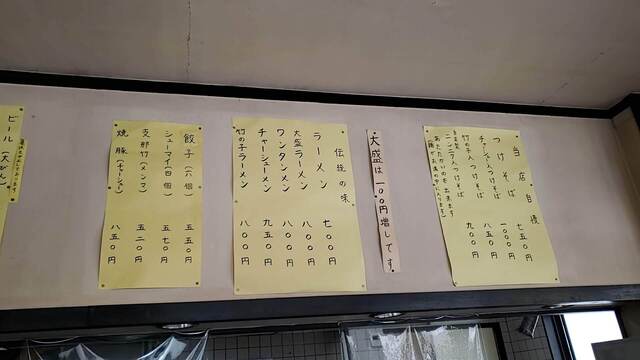 当店自慢
つけそば 七五〇円
チャーシュー入つけそば 一〇〇〇円
竹の子入つけそば 八五〇円
ニンニク入つけそば 九〇〇円
あたたかいのも出来ます
大盛は一〇〇円増しです
伝統の味
ラーメン 七〇〇円
大盛ラーメン 八〇〇円
ワンタンメン 八〇〇円
チャーシューメン 九五〇円
竹の子ラーメン 八〇〇円
餃子(六個) 五五〇円
シューマイ(四個) 五七〇円
支那竹(メンマ) 五二〇円
焼豚(チャーシュー) 八五〇円
ビール(大びん)